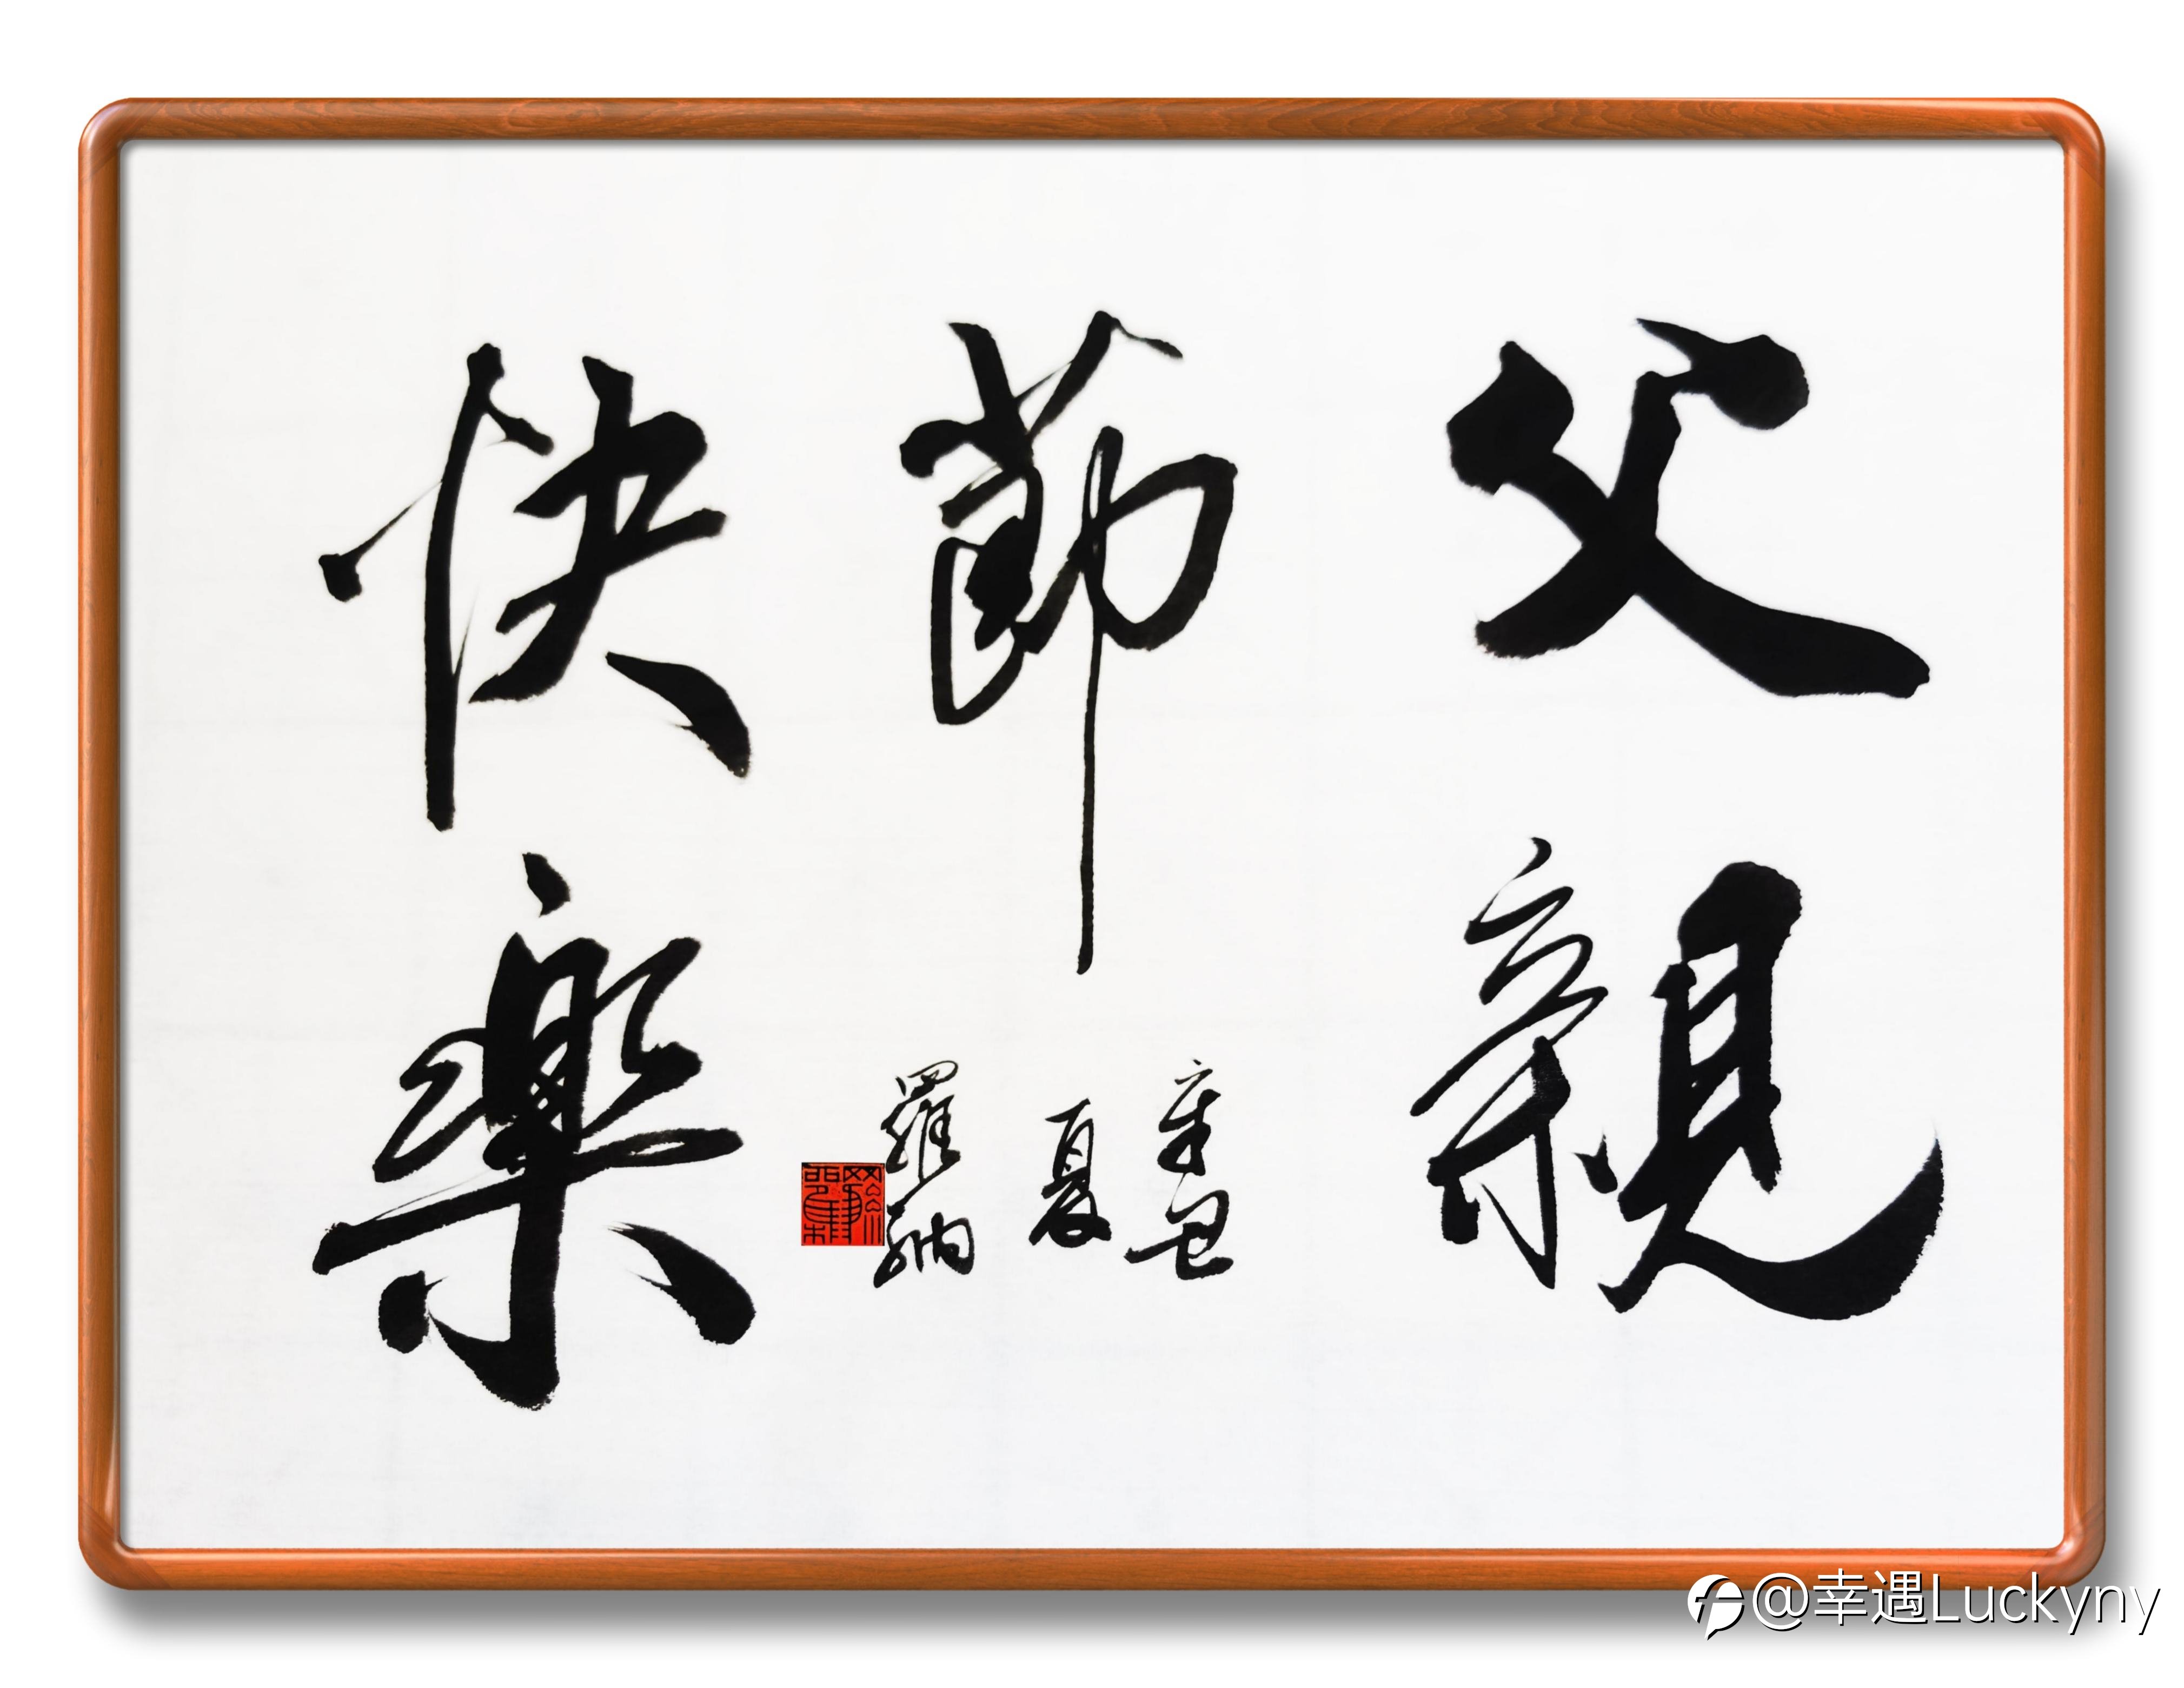 父親
節
快樂
辛丑
夏
羅納
@幸遇Luckyny